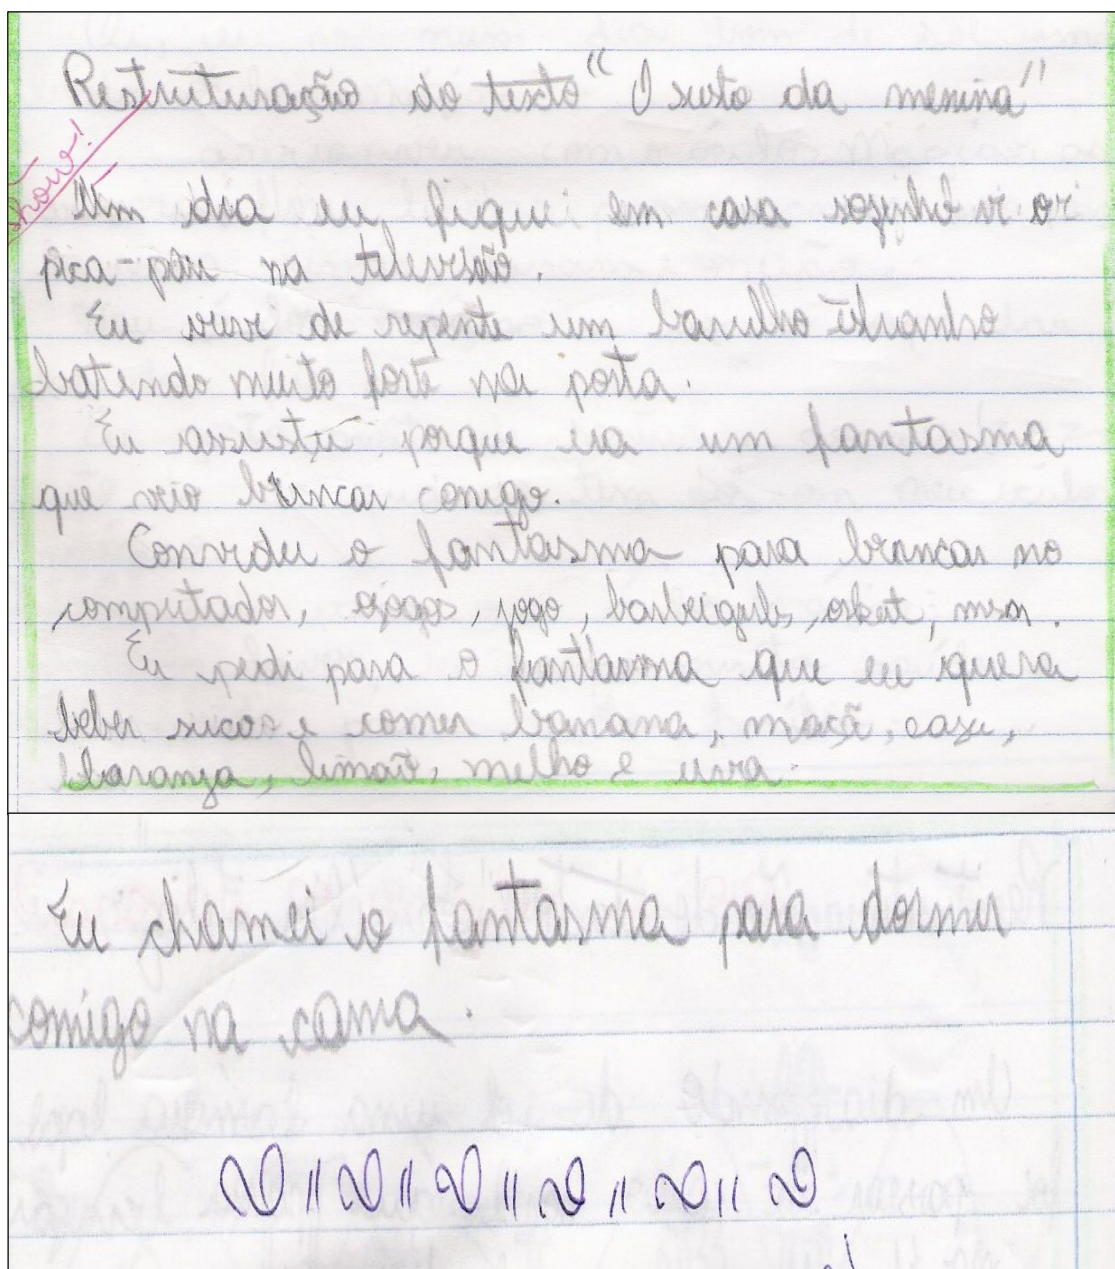 Restruturação do texto "O susto da menina"
show!
Um dia eu fiquei em casa sozinho vi o
pica-pau na televisão.
Eu de repente um barulho
batendo muito forte na porta.
Eu assustei porque era um fantasma
que veio brincar comigo.
Convidei o fantasma para brincar no
computador, jogo, orkut, msn.
Eu pedi para o fantasma que eu quera
beber sucos e comer banana, maçã,
laranja, limão, melho e uva.
Eu chamei o fantasma para dormir
comigo na cama.